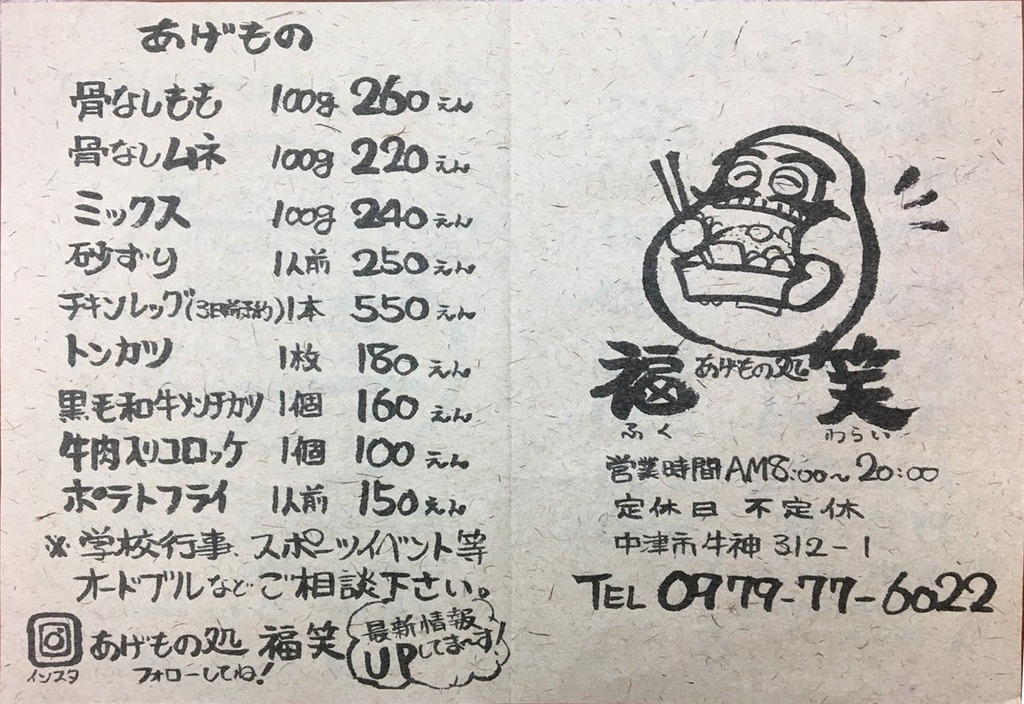 あげもの
骨なしもも 100g 260えん
骨なしムネ 100g 220えん
ミックス 100g 240えん
砂ずり 1人前 250えん
チキンレッグ(3日前予約)1本 550えん
トンカツ 1枚 180えん
黒毛和牛メンチカツ 1個 160えん
牛肉入りコロッケ 1個 100えん
ポテトフライ 1人前 150えん
※学校行事 スポーツイベント等
オードブルなどご相談下さい。
インスタ
あげもの処 福笑
フォローしてね!
最新情報
UPしてま〜す!
福 あげもの処 笑
ふく わらい
営業時間AM8:00〜20:00
定休日 不定休
中津市牛神312-1
TEL 0979-77-6022